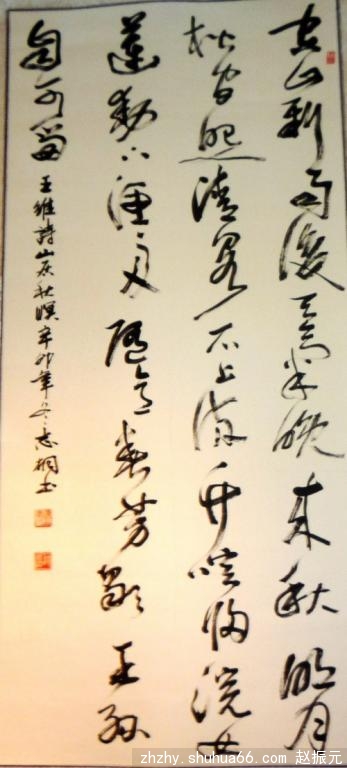 空山新雨後天氣晚来秋明月
松間照清泉石上流竹喧歸浣女
蓮動下漁舟隨意春芳歇王孫
自可留
王維詩山居秋暝辛卯年冬志桐书
zhzhy.shuhua66.com 赵振元